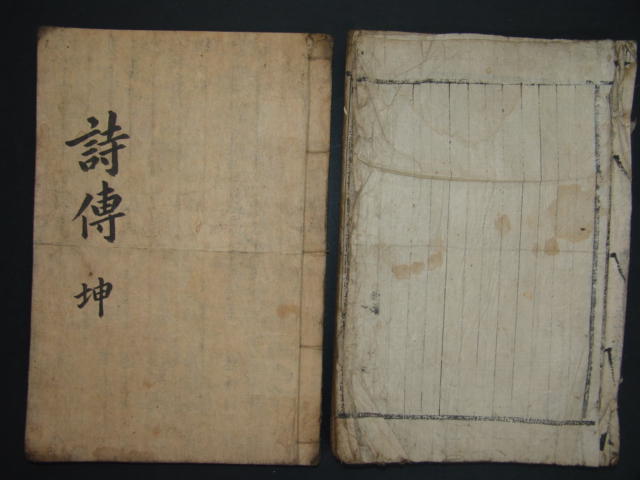 詩傳 坤